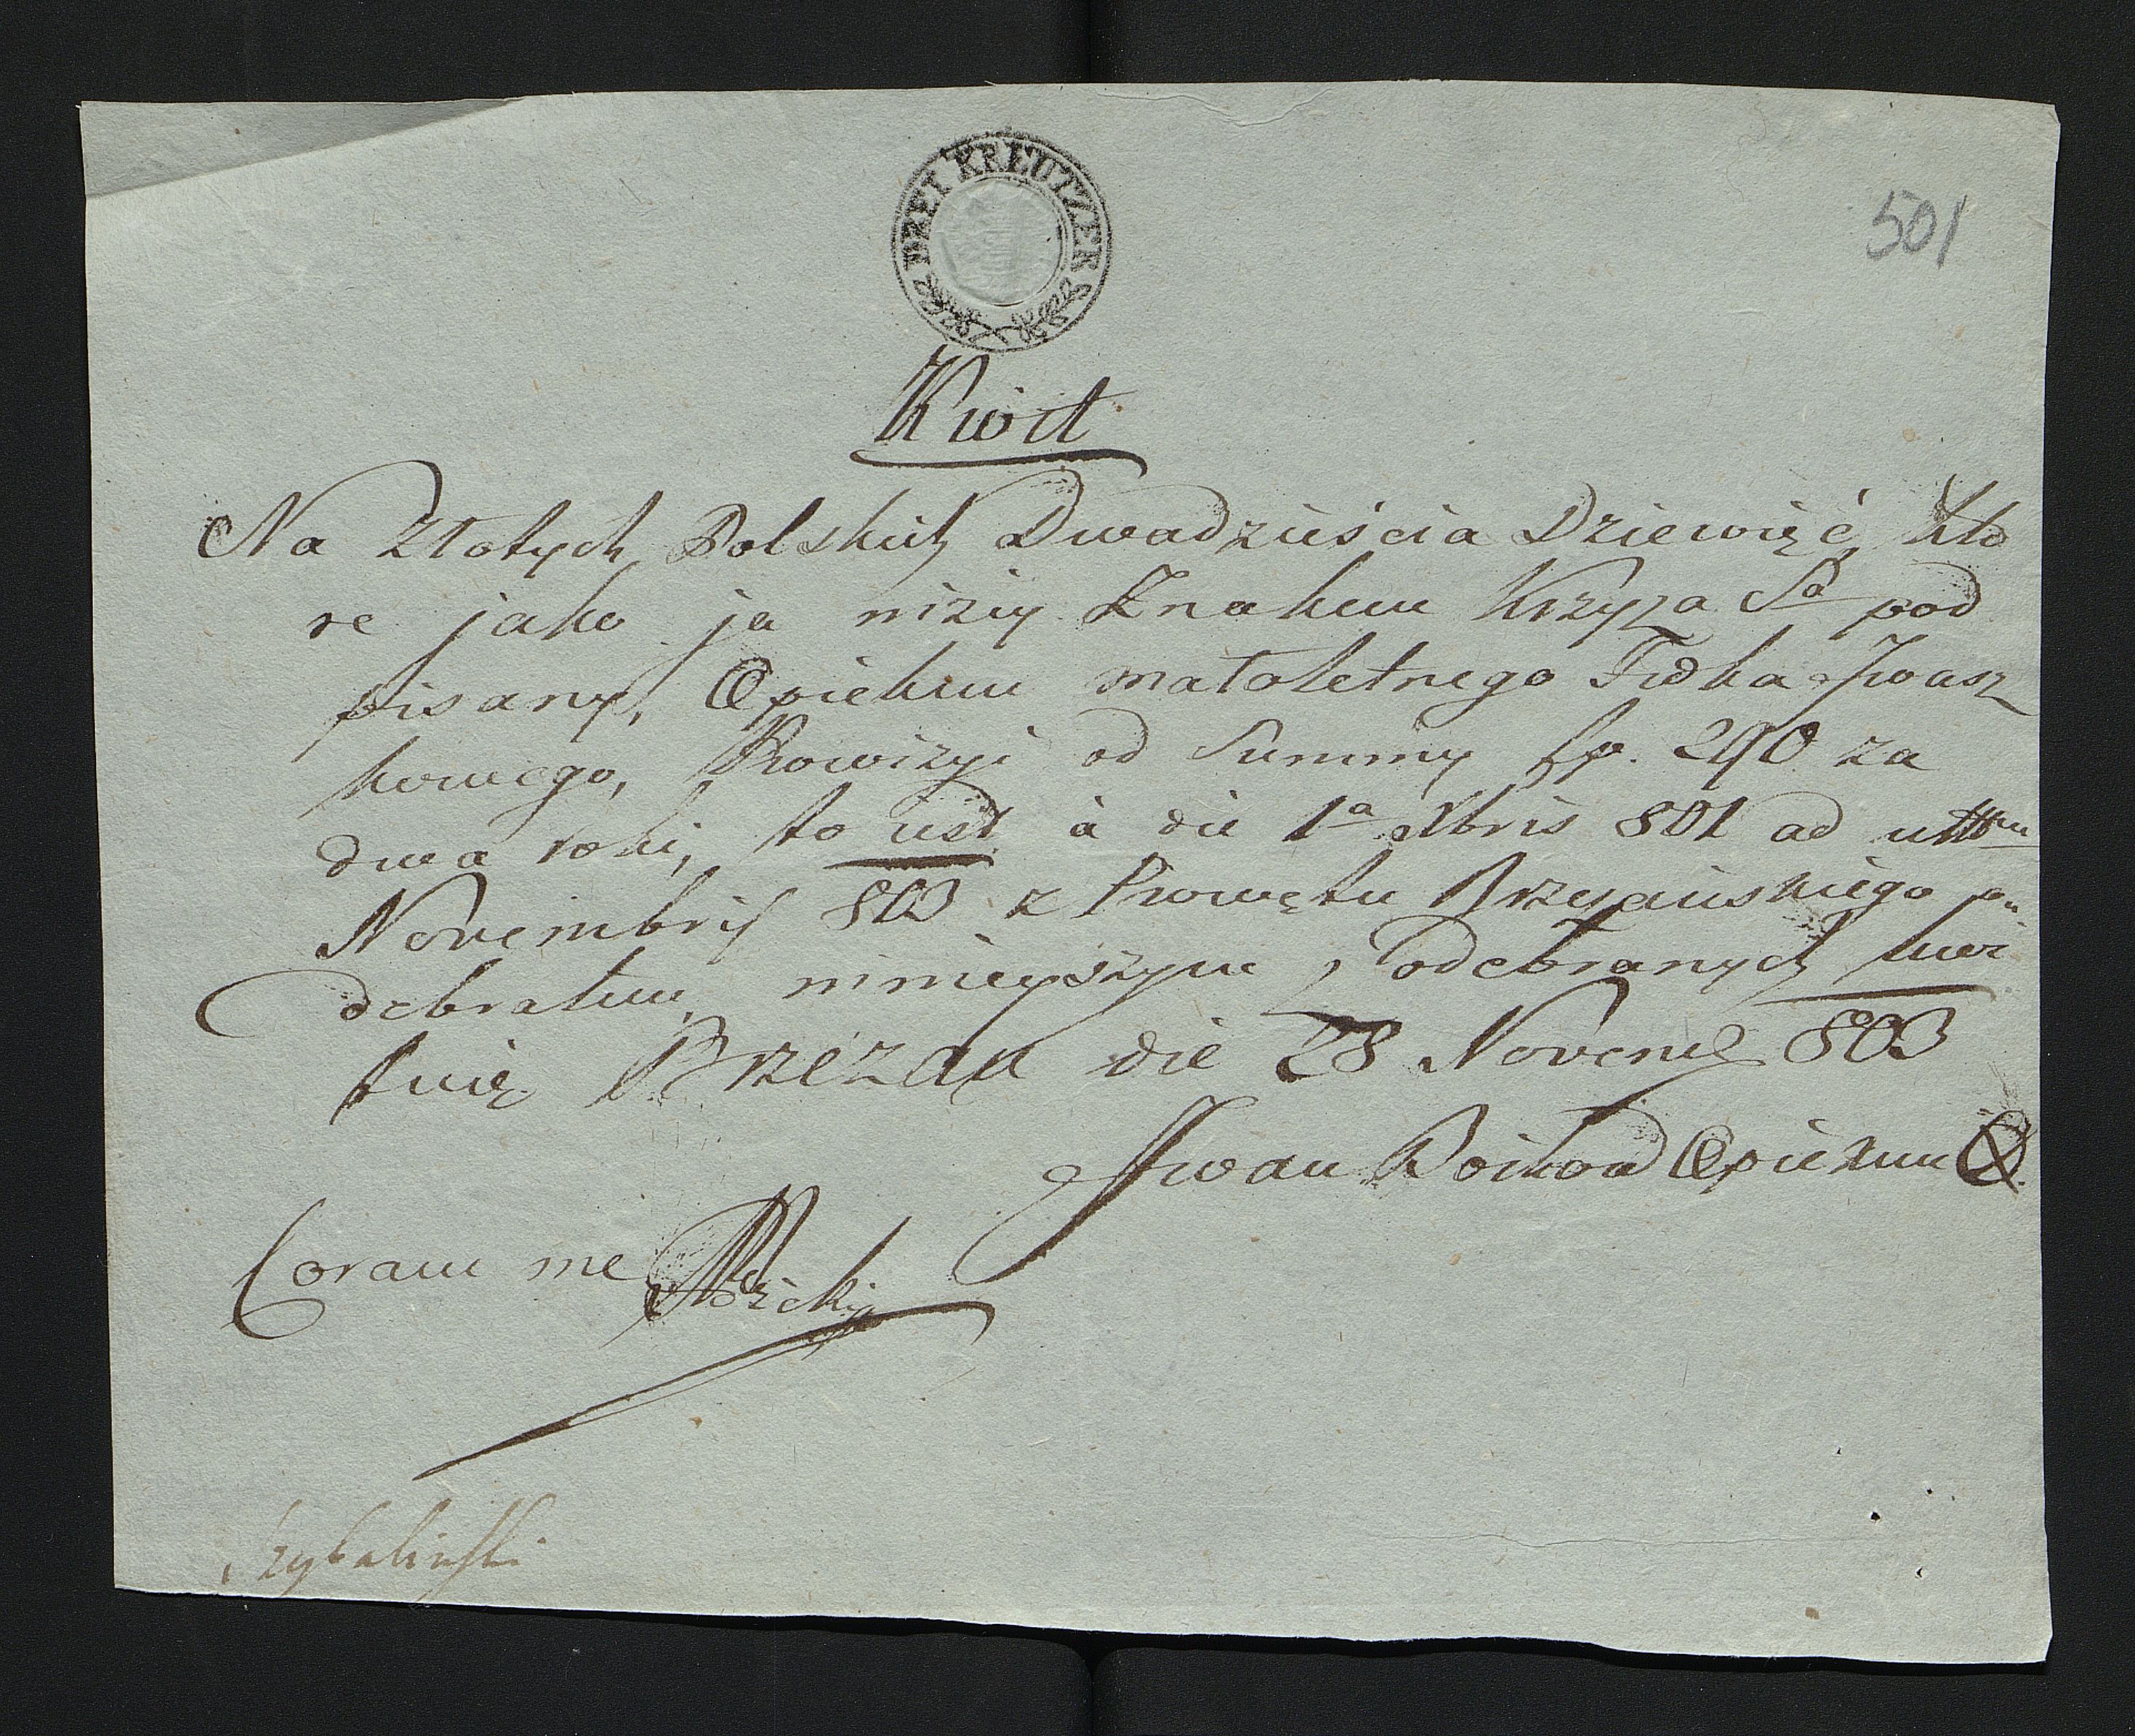 DREI KREUTZER
501
Kwit
Na Złotych Polskich Dwadzieścia Dziewięć, któ
re jako ja niżey Znakiem Krzyża Sgo pod
pisany, Opiekun małoletnego Fedka Iwasz
kowego, Prowizyi od Summy fp. 290 za
dwa roki, to iest à die 1a Xbris 801 ad ultimam
Novembris 803 z Prowętu Brzezańskiego
odebrałem, ninieyszym z odebranych kwi
tuię Brzezan die 28 Novemb 803
Iwan Opiekun
Coram me